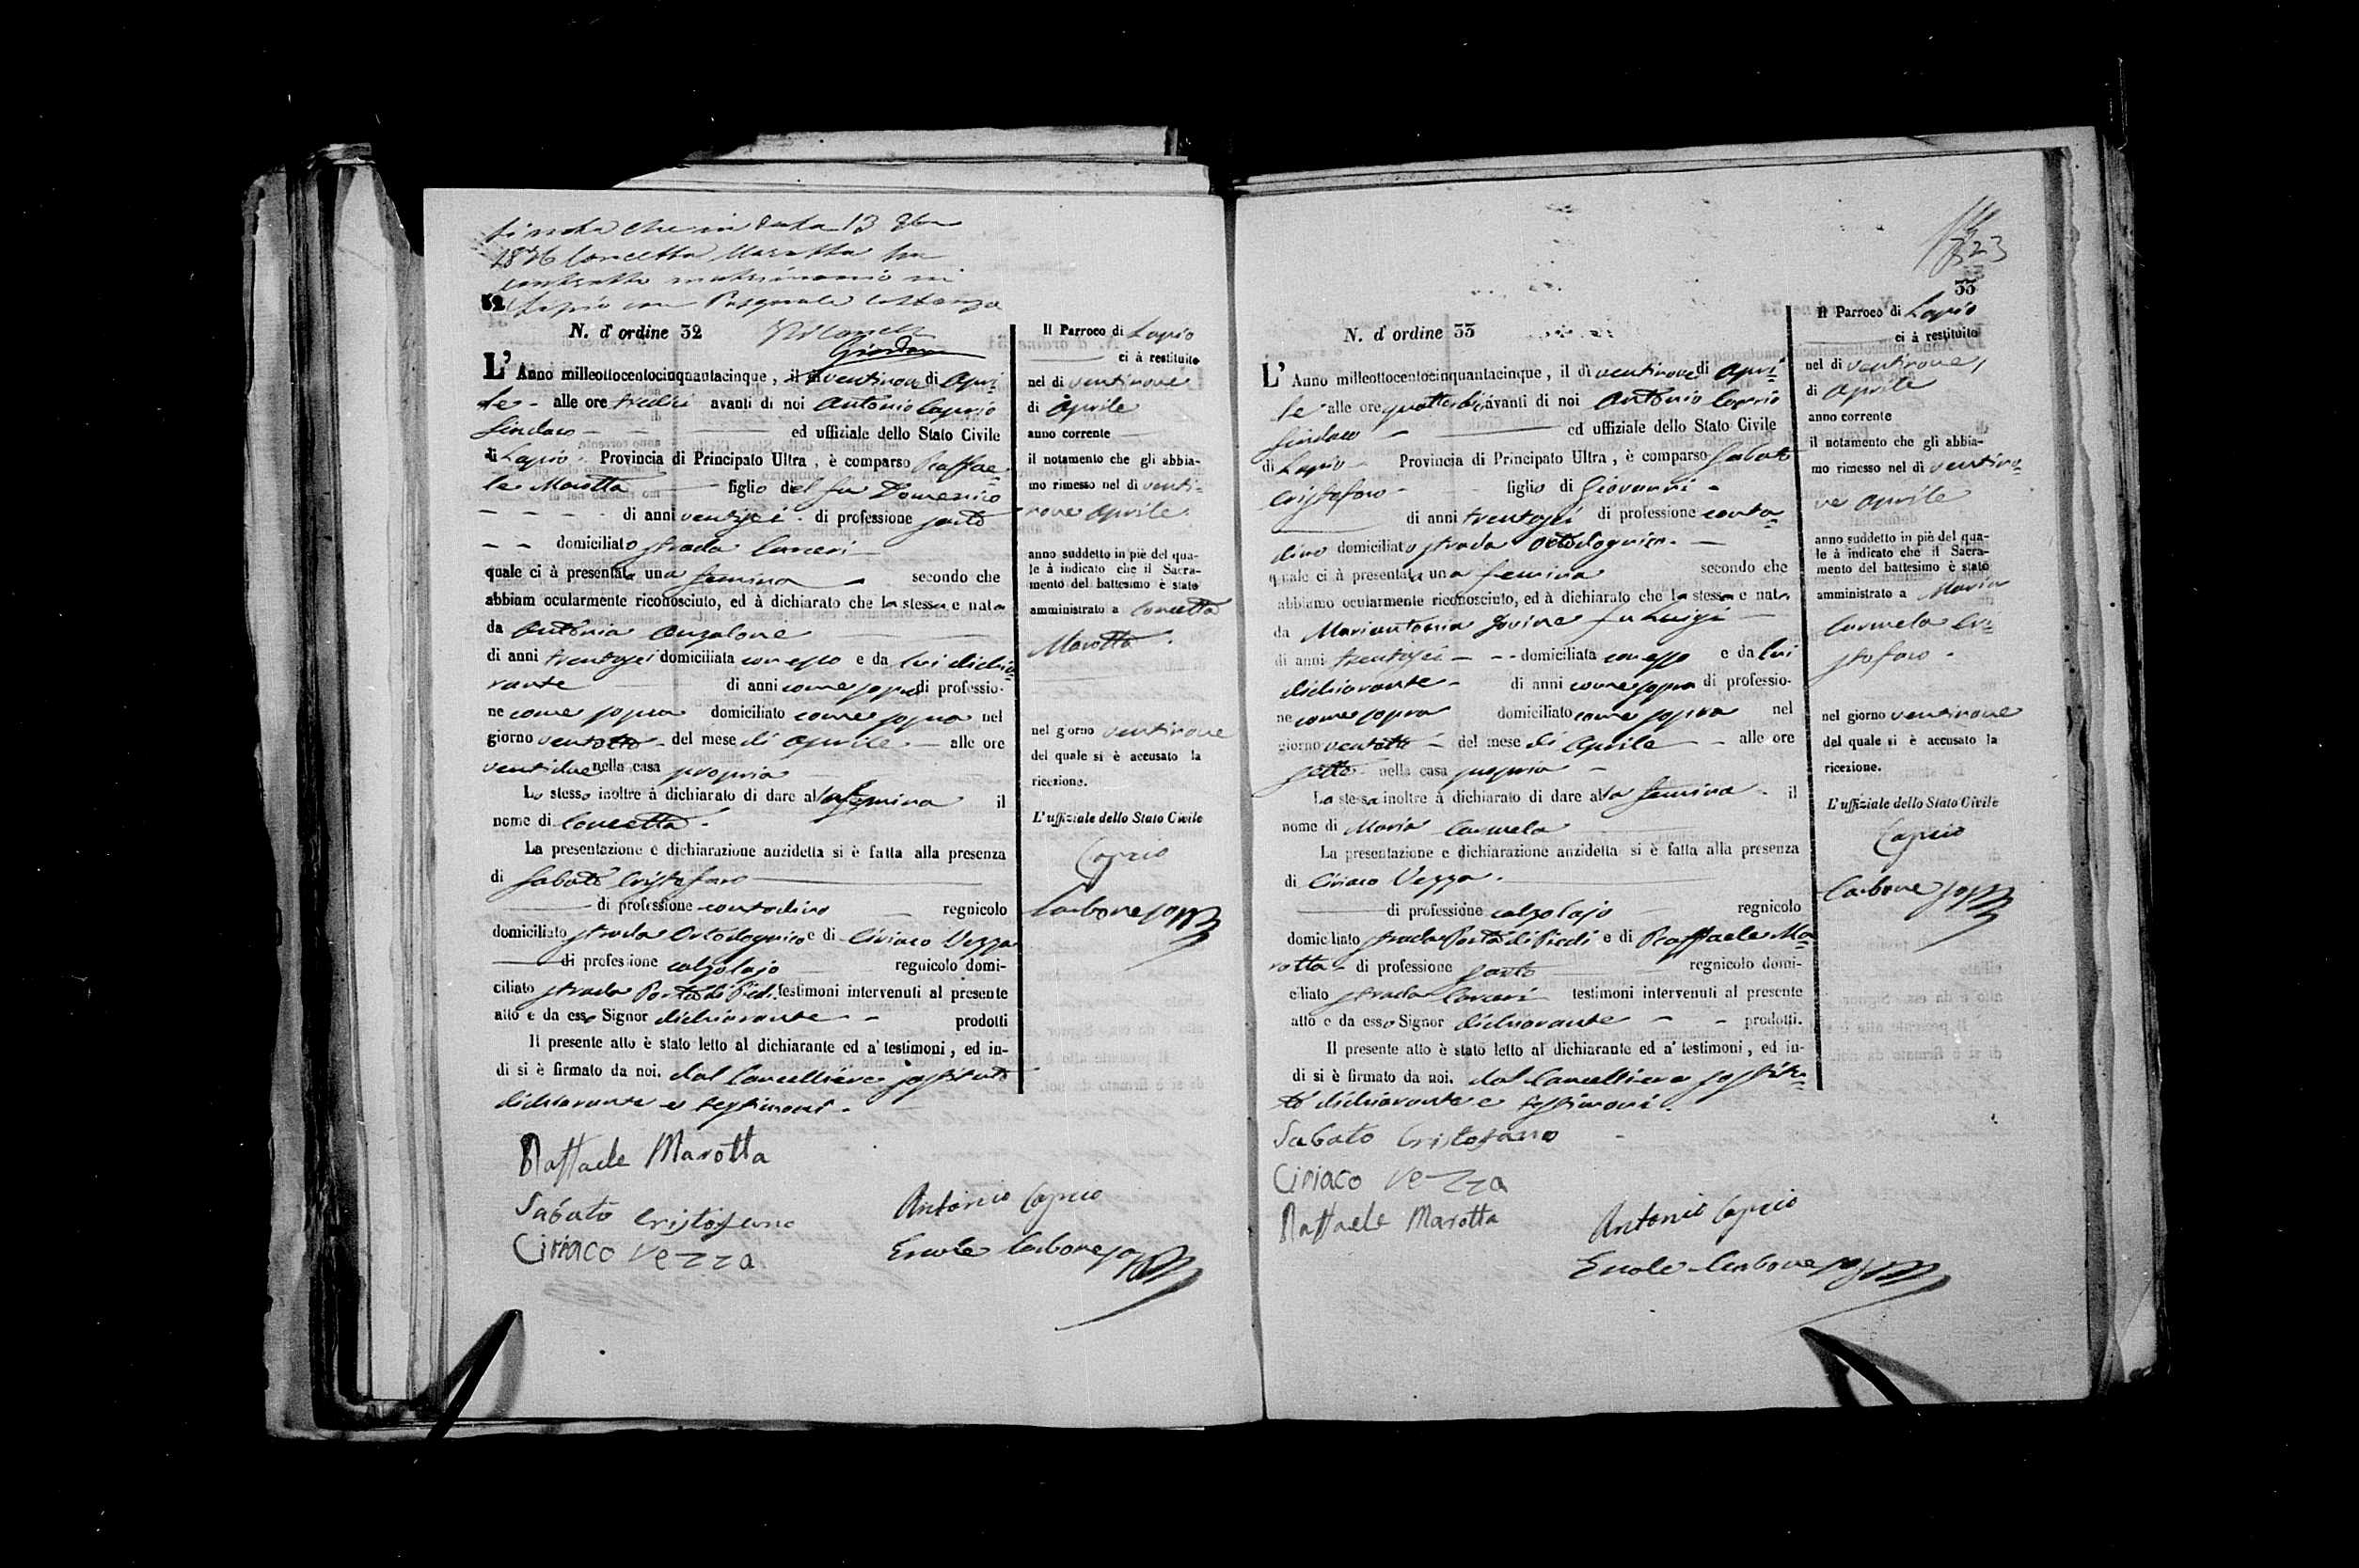 Si nota che in data 13
1876 Concetta Marotta ha
contratto matrimonio in
Lapio con Pasquale Costanzo
32
N. d' ordine 32
L' Anno milleottocentocinquantacinque, il dì ventinove di Apri-
le - alle ore tredici avanti di noi Antonio Caprio
Sindaco ed uffiziale dello Stato Civile
di Lapio. Provincia di Principato Ultra, è comparso Raffae-
le Marotta figlio del fu Domenico
di anni ventisei. di professione sarto
domiciliato strada Carceri
quale ci à presentata una femina secondo che
abbiam ocularmente riconosciuto, ed à dichiarato che la stessa e nata
da Antonia Anzalone
di anni trentasei domiciliata con esso e da lui dichia-
rante di anni come sopra di professio-
ne come sopra domiciliato come sopra nel
giorno ventotto - del mese di Aprile - alle ore
ventidue nella casa propria
Lo stesso inoltre à dichiarato di dare alla femina il
nome di Concetta.
La presentazione e dichiarazione anzidetta si è fatta alla presenza
di Sabato Cristofaro
di professione contadino regnicolo
domiciliato strada e di Ciriaco Vezza
di professione calzolajo regnicolo domi-
ciliato strada Porta di Piedi testimoni intervenuti al presente
atto e da esso Signor dichiarante - prodotti
Il presente atto è stato letto al dichiarante ed a' testimoni, ed in-
di si è firmato da noi. dal Cancelliere sostituto
dichiarante e testimoni.
Raffaele Marotta
Sabato Cristofano
Ciriaco Vezza
Antonio Caprio
Ercole Carbone
Il Parroco di Lapio
ci à restituito
nel di ventinove
di Aprile
anno corrente
il notamento che gli abbia-
mo rimesso nel dì venti-
nove Aprile
anno suddetto in piè del qua-
le à indicato che il Sacra-
mento del battesimo è stato
amministrato a Concetta
Marotta.
nel giorno ventinove
del quale si è accusato la
ricezione.
L'uffiziale dello Stato Civile
Caprio
Carbone
323
33
N. d' ordine 33
L' Anno milleottocentocinquantacinque, il dì ventinove di Apri-
le alle ore quattordici avanti di noi Antonio Caprio
Sindaco - ed uffiziale dello Stato Civile
di Lapio - Provincia di Principato Ultra, è comparso Sabato
Cristofaro - figlio di Giovanni -
di anni trentasei di professione conta-
dino domiciliato strada
quale ci à presentata una femina secondo che
abbiamo ocularmente riconosciuto, ed à dichiarato che la stessa e nata
da Mariantonia Iovine fu Luigi
di anni trentasei - domiciliata con esso e da lui
dichiarante - di anni come sopra di professio-
ne come sopra domiciliato come sopra nel
giorno ventotto - del mese di Aprile - alle ore
sette - nella casa propria -
Lo stesso inoltre à dichiarato di dare alla femina - il
nome di Maria Carmela
La presentazione e dichiarazione anzidetta si è fatta alla presenza
di Ciriaco Vezza.
di professione calzolajo regnicolo
domiciliato strada Porta di Piedi e di Raffaele Ma-
rotta - di professione sarto regnicolo domi-
ciliato strada Carceri testimoni intervenuti al presente
atto e da esso Signor dichiarante - - prodotti.
Il presente atto è stato letto al dichiarante ed a' testimoni, ed in-
di si è firmato da noi. dal Cancelliere sostitu-
to dichiarante e testimoni.
Sabato Cristofano
Ciriaco Vezza
Raffaele Marotta
Antonio Caprio
Ercole Carbone
Il Parroco di Lapio
ci à restituito
nel di ventinove
di Aprile
anno corrente
il notamento che gli abbia-
mo rimesso nel dì ventino-
ve Aprile
anno suddetto in piè del qua-
le à indicato che il Sacra-
mento del battesimo è stato
amministrato a Maria
Carmela Cri-
stofaro.
nel giorno ventinove
del quale si è accusato la
ricezione.
L'uffiziale dello Stato Civile
Caprio
Carbone